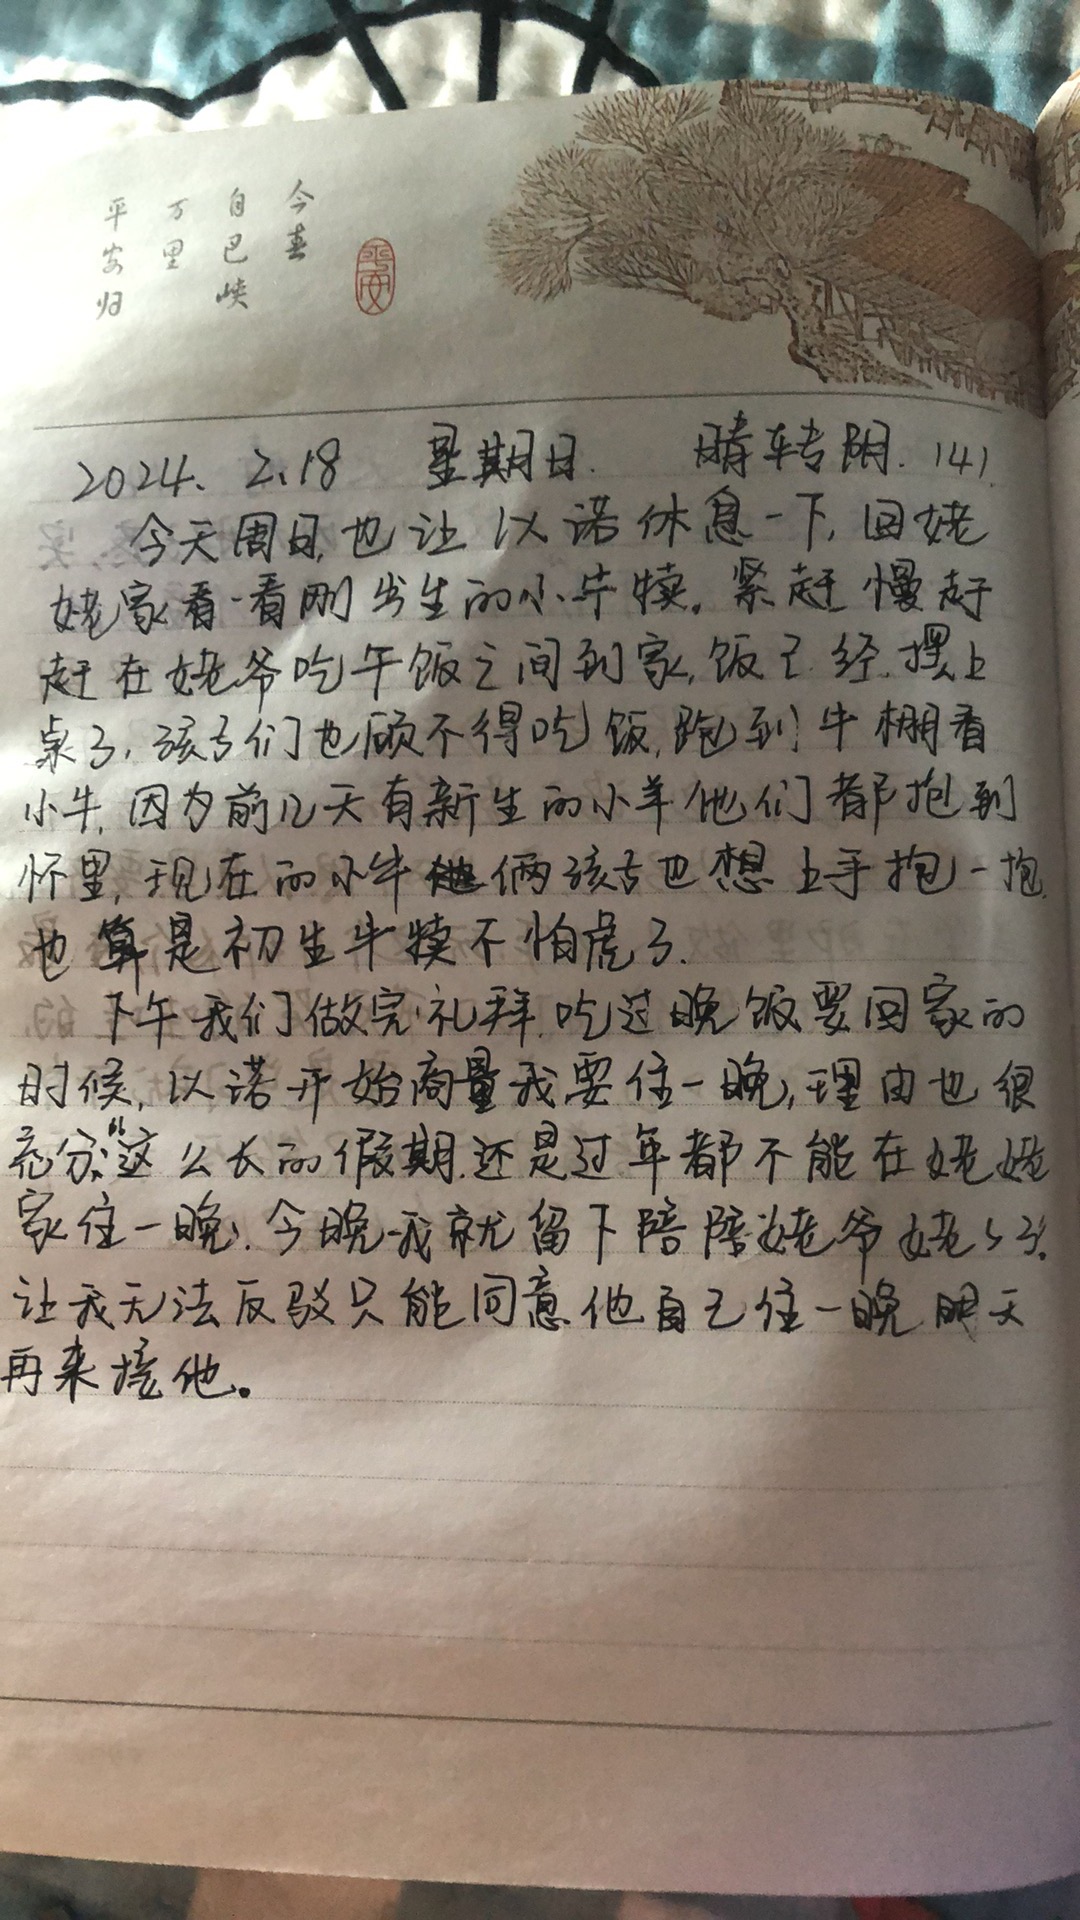 今春
自巴峡
万里
平安归
平安
2024.2.18 星期日. 晴转阴. 141.
今天周日,也让以诺休息一下,回姥
姥家看一看刚出生的小牛犊。紧赶慢赶
赶在姥爷吃午饭之间到家,饭已经摆上
桌了,孩子们也顾不得吃饭,跑到牛棚看
小牛,因为前几天有新生的小羊他们都抱到
怀里,现在的小牛他俩孩子也想上手抱一抱,
也算是初生牛犊不怕虎了.
下午我们做完礼拜,吃过晚饭要回家的
时候,以诺开始商量我要住一晚,理由也很
充分:“这么长的假期.还是过年都不能在姥姥
家住一晚,今晚我就留下陪陪姥爷姥姥了.
让我无法反驳只能同意他自己住一晚明天
再来接他。